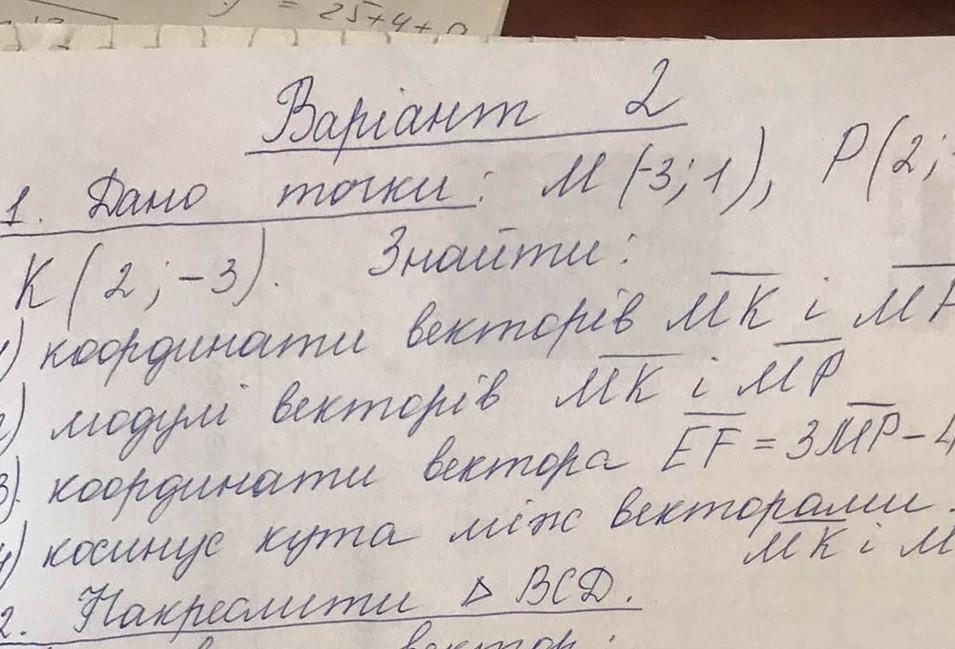 = 25+4+0
Варіант 2
1. Дано точки: M(-3;1), P(2;
K(2;-3). Знайти:
) координати векторів MK і MP
) модулі векторів MK і MP
3) координати вектора EF = 3MP - 4
4) косинус кута між векторами
MK і M
2. Накреслити △ BCD.
вектор